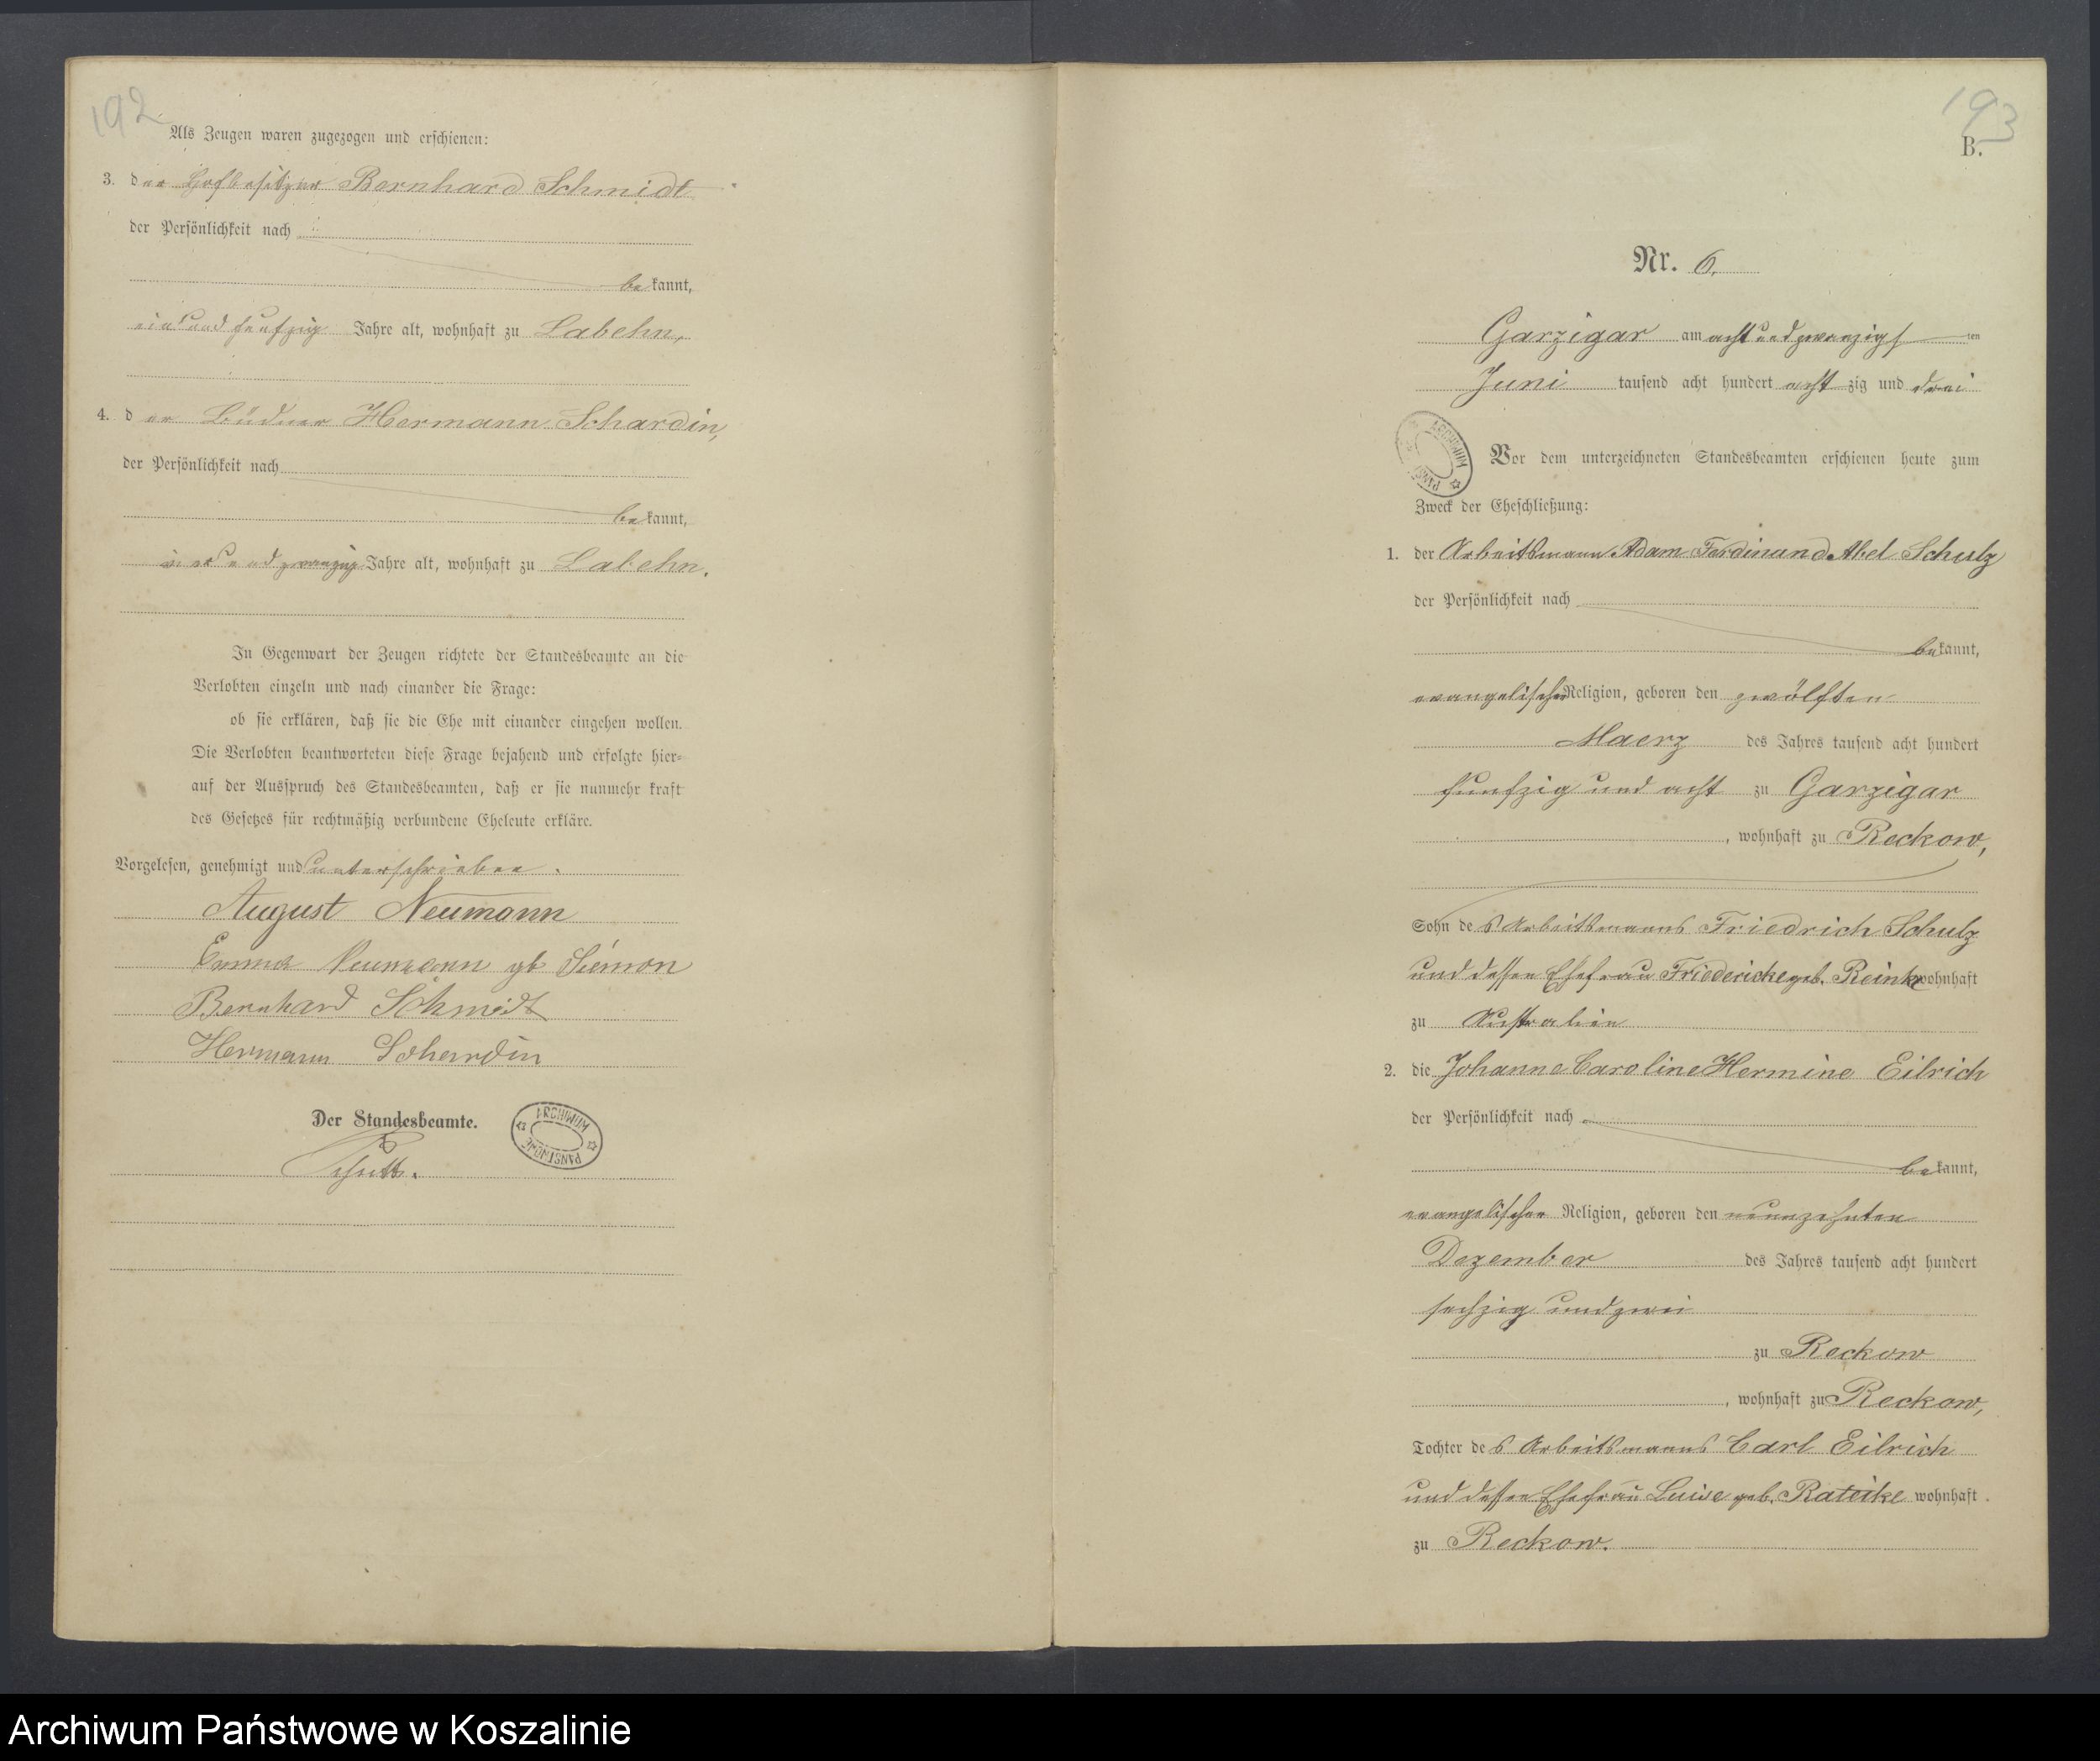 192
Als Zeugen waren zugezogen und erschienen:
3. der Hofbesitzer Bernhard Schmidt
der Persönlichkeit nach
bekannt,
einundfunfzig Jahre alt, wohnhaft zu Labehn,
4. der Büdner Hermann Schardin,
der Persönlichkeit nach
bekannt,
undzwanzig Jahre alt, wohnhaft zu Labehn.
In Gegenwart der Zeugen richtete der Standesbeamte an die
Verlobten einzeln und nach einander die Frage:
ob sie erklären, daß sie die Ehe mit einander eingehen wollen.
Die Verlobten beantworteten diese Frage bejahend und erfolgte hier-
auf der Ausspruch des Standesbeamten, daß er sie nunmehr kraft
des Gesetzes für rechtmäßig verbundene Eheleute erkläre.
Vorgelesen, genehmigt und unterschrieben.
August Neumann
Emma Neumann gb Siemon
Bernhard Schmidt
Hermann Schardin
Der Standesbeamte.
ARCHIWUM PAŃSTWOWE
193
B.
Nr. 6.
Garzigar am achtundzwanzigsten
Juni tausend acht hundert achtzig und drei
ARCHIWUM
Vor dem unterzeichneten Standesbeamten erschienen heute zum
Zweck der Eheschließung:
1. der Arbeitsmann Adam Ferdinand Abel Schulz
der Persönlichkeit nach
bekannt,
evangelischer Religion, geboren den zwölften
Maerz des Jahres tausend acht hundert
funfzig und acht zu Garzigar
, wohnhaft zu Reckow,
Sohn des Arbeitsmanns Friedrich Schulz
und dessen Ehefrau Friedericke geb. Reinke wohnhaft
zu Australien
2. die Johanne Caroline Hermine Eilrich
der Persönlichkeit nach
bekannt,
evangelischer Religion, geboren den neunzehnten
Dezember des Jahres tausend acht hundert
sechzig und zwei
zu Reckow
, wohnhaft zu Reckow,
Tochter des Arbeitsmanns Carl Eilrich
und dessen Ehefrau Luise geb. Rateike wohnhaft
zu Reckow.
Archiwum Państwowe w Koszalinie